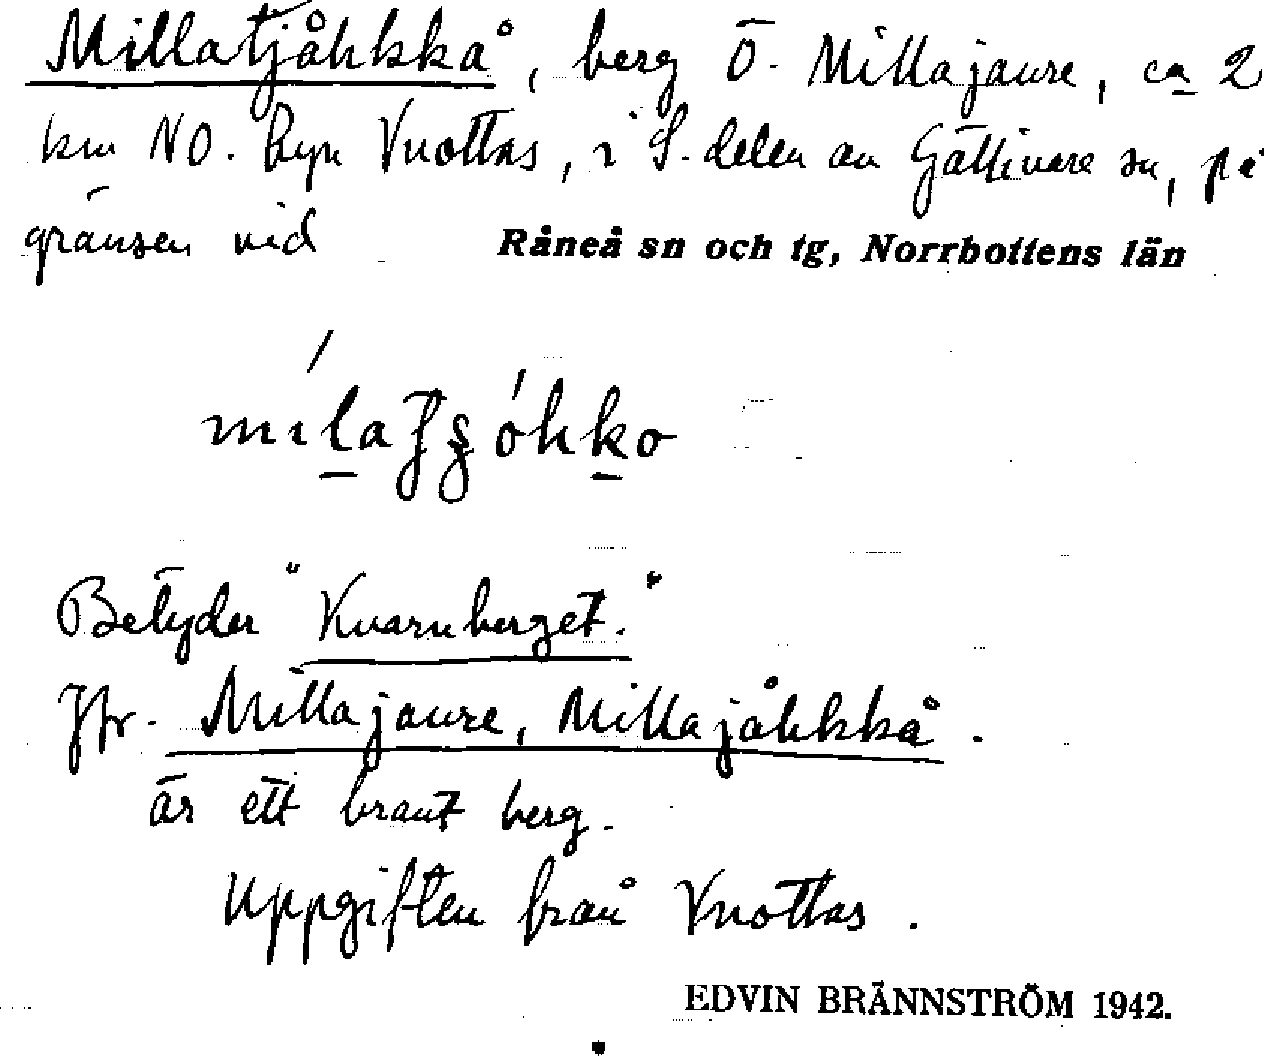 Millatjåhkkå, berg Ö. Millajaure, ca 2
km NO. byn Vuottas, i S. delen av Gällivare sn, på
gränsen vid Råneå sn och tg, Norrbottens län
Betyder "Kvarnberget."
Jfr. Millajaure, Millajåhkkå.
är ett brant berg.
Uppgiften från Vuottas.
EDVIN BRÄNNSTRÖM 1942.